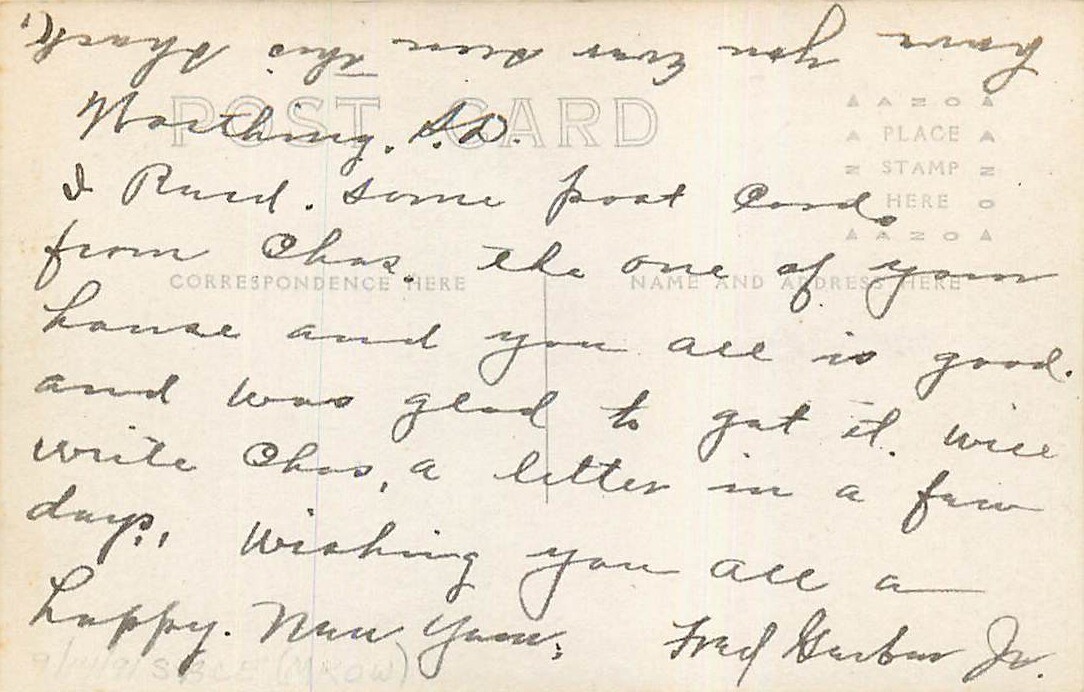 have you Ever seen this shack
POST CARD
Worthing. S.D.
AZO
PLACE
STAMP
HERE
AZO
I Recd. some post Cards
from Chas. the one of your
CORRESPONDENCE HERE
NAME AND ADDRESS HERE
house and you all is good.
and was glad to get it. will
write Chas, a letter in a few
days., Wishing you all a
happy. New Year.
Fred Jr.
9/14/91 SBCE (MROW)